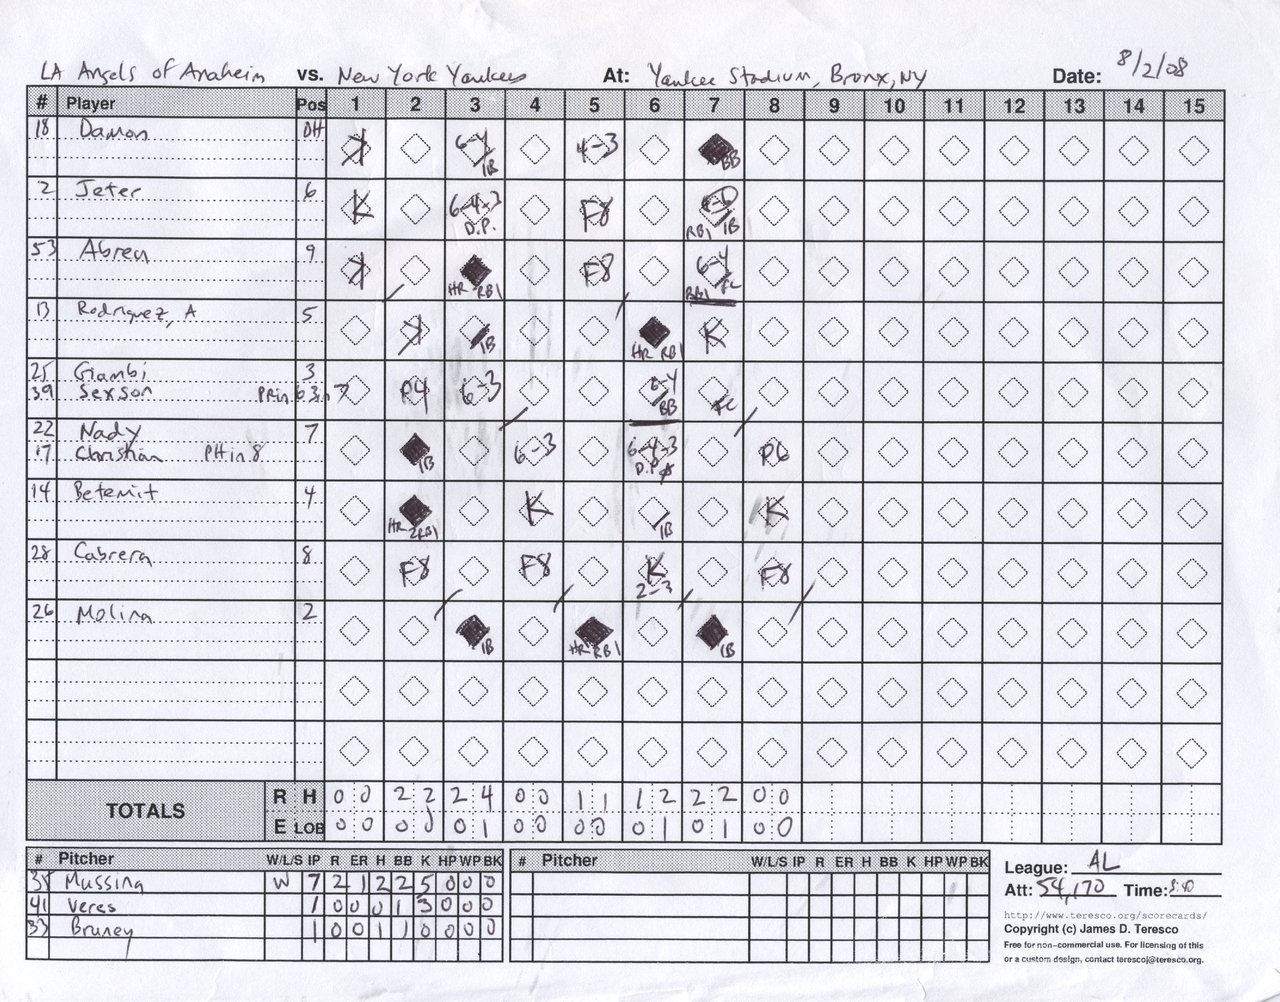 LA Angels of Anaheim vs. New York Yankees At: Yankee Stadium, Bronx, NY Date: 8/2/08
# Player Pos 1 2 3 4 5 6 7 8 9 10 11 12 13 14 15
18 Damon DH K 6-4 1B 4-3 BB
2 Jeter 6 K 6-4-3 D.P. F8 RBI 1B
53 Abreu 9 K HR RBI F8 6-4 FC RBI
13 Rodriguez, A 5 K 1B HR RBI K
25 Giambi 3 P4 6-3 6-4 BB FC
39 Sexson PR in 6 3 in 7
22 Nady 7 1B 6-3 6-4-3 D.P. P6
17 Christian PH in 8
14 Betemit 4 HR 2RBI K 1B K
28 Cabrera 8 F8 F8 K 2-3 F8
26 Molina 2 1B HR RBI 1B
TOTALS R H 0 0 2 2 2 4 0 0 1 1 1 2 2 2 0 0
E LOB 0 0 0 0 0 1 0 0 0 0 0 1 0 1 0 0
# Pitcher W/L/S IP R ER H BB K HP WP BK # Pitcher W/L/S IP R ER H BB K HP WP BK
35 Mussina W 7 2 1 2 2 5 0 0 0
41 Veres 1 0 0 0 1 3 0 0 0
33 Bruney 1 0 0 1 1 0 0 0 0
League: AL
Att: 54,170 Time:
http://www.teresco.org/scorecards/
Copyright (c) James D. Teresco
Free for non-commercial use. For licensing of this
or a custom design, contact terescoj@teresco.org.